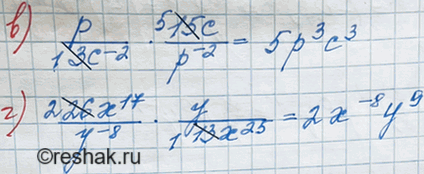 в) p/(1 3c⁻²) · (5 15c)/p⁻² = 5p³c³
г) (2 26x¹⁷)/y⁻⁸ · y/(1 13x²⁵) = 2x⁻⁸y⁹
©reshak.ru